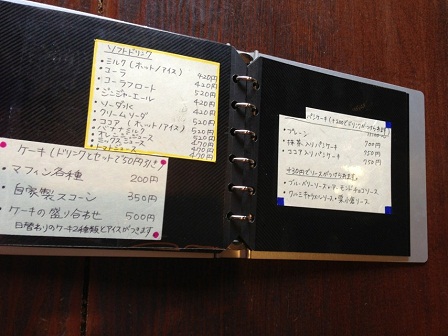 ソフトドリンク
・ミルク(ホット/アイス) 420円
・コーラ 420円
・コーラフロート 520円
・ジンジャーエール 420円
・ソーダ水 420円
・クリームソーダ 520円
・ココア(ホット/アイス) 520円
・バナナミルク 520円
・オレンジジュース 470円
470円
・トマトジュース 470円
ケーキ(ドリンクとセットで50円引き)
・マフィン各種 200円
・自家製スコーン 350円
・ケーキの盛り合わせ 500円
日替わりのケーキ2種類とアイスがつきます
・プレーン 700円
・抹茶入りパンケーキ 750円
・ココア入りパンケーキ 750円
・ブルーベリーソース・アーモンドチョコソース